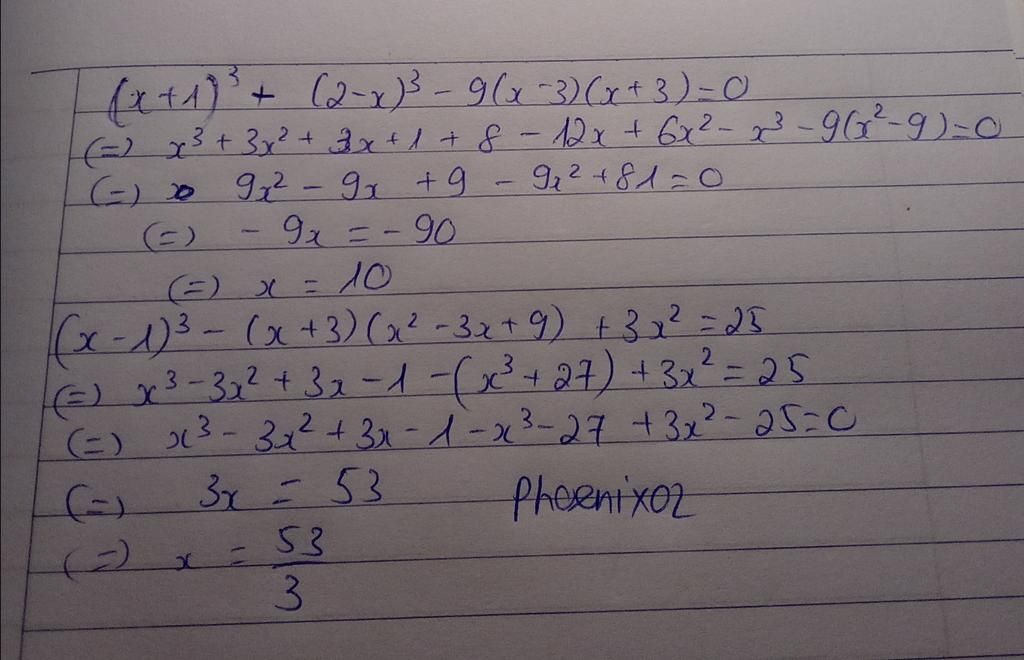 (x+1)³ + (2-x)³ - 9(x-3)(x+3)=0
(=) x³+3x²+3x+1+8-12x+6x²-x³-9(x²-9)=0
(=) 9x²-9x+9-9x²+81=0
(=) -9x=-90
(=) x=10
(x-1)³-(x+3)(x²-3x+9)+3x²=25
(=) x³-3x²+3x-1-(x³+27)+3x²=25
(=) x³-3x²+3x-1-x³-27+3x²-25=0
(=) 3x=53 Phoenixoz
(=) x=53/3